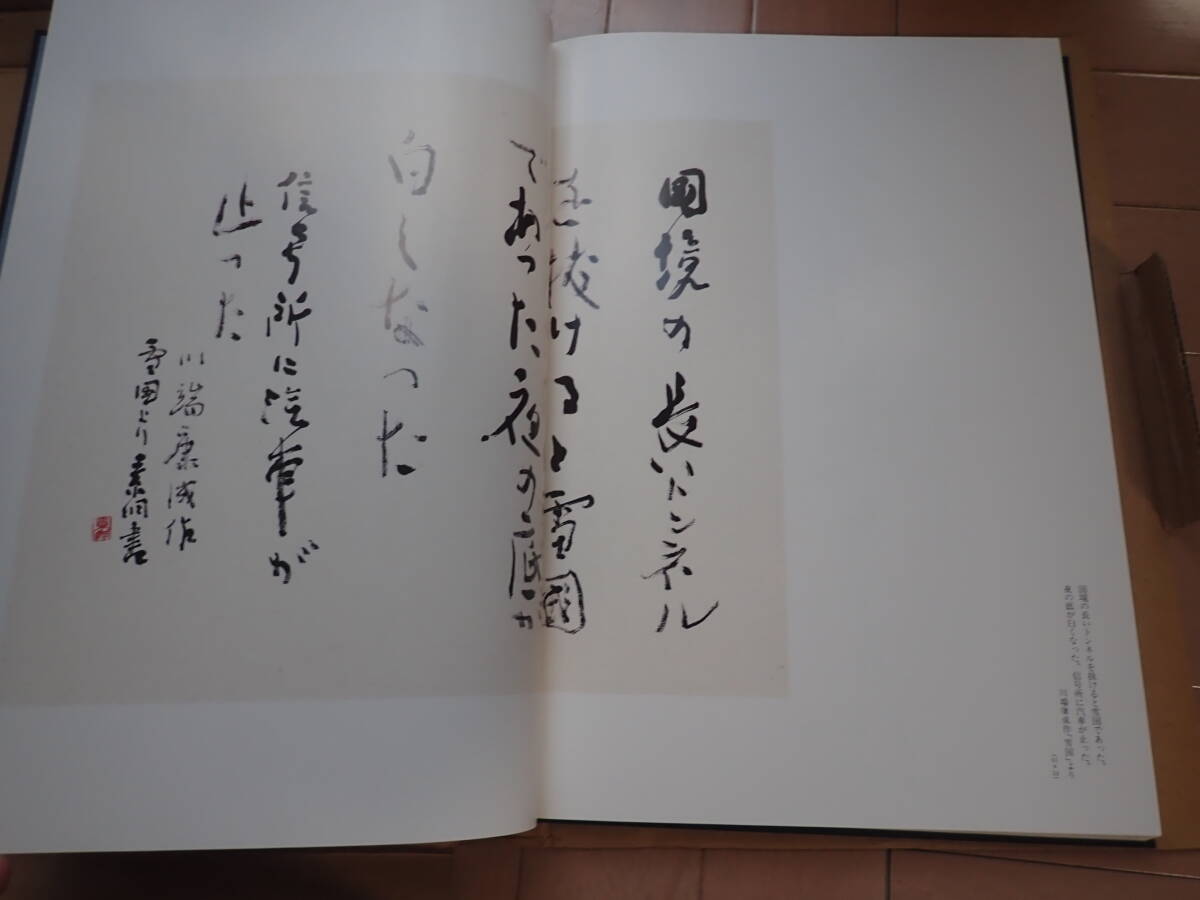 国境の長いトンネル
を抜けると雪國
であった、夜の底が
白くなった
信号所に汽車が
止った
川端康成作
雪国より 素洞書
国境の長いトンネルを抜けると雪国であった。
夜の底が白くなった。信号所に汽車が止った。
川端康成作「雪国」より